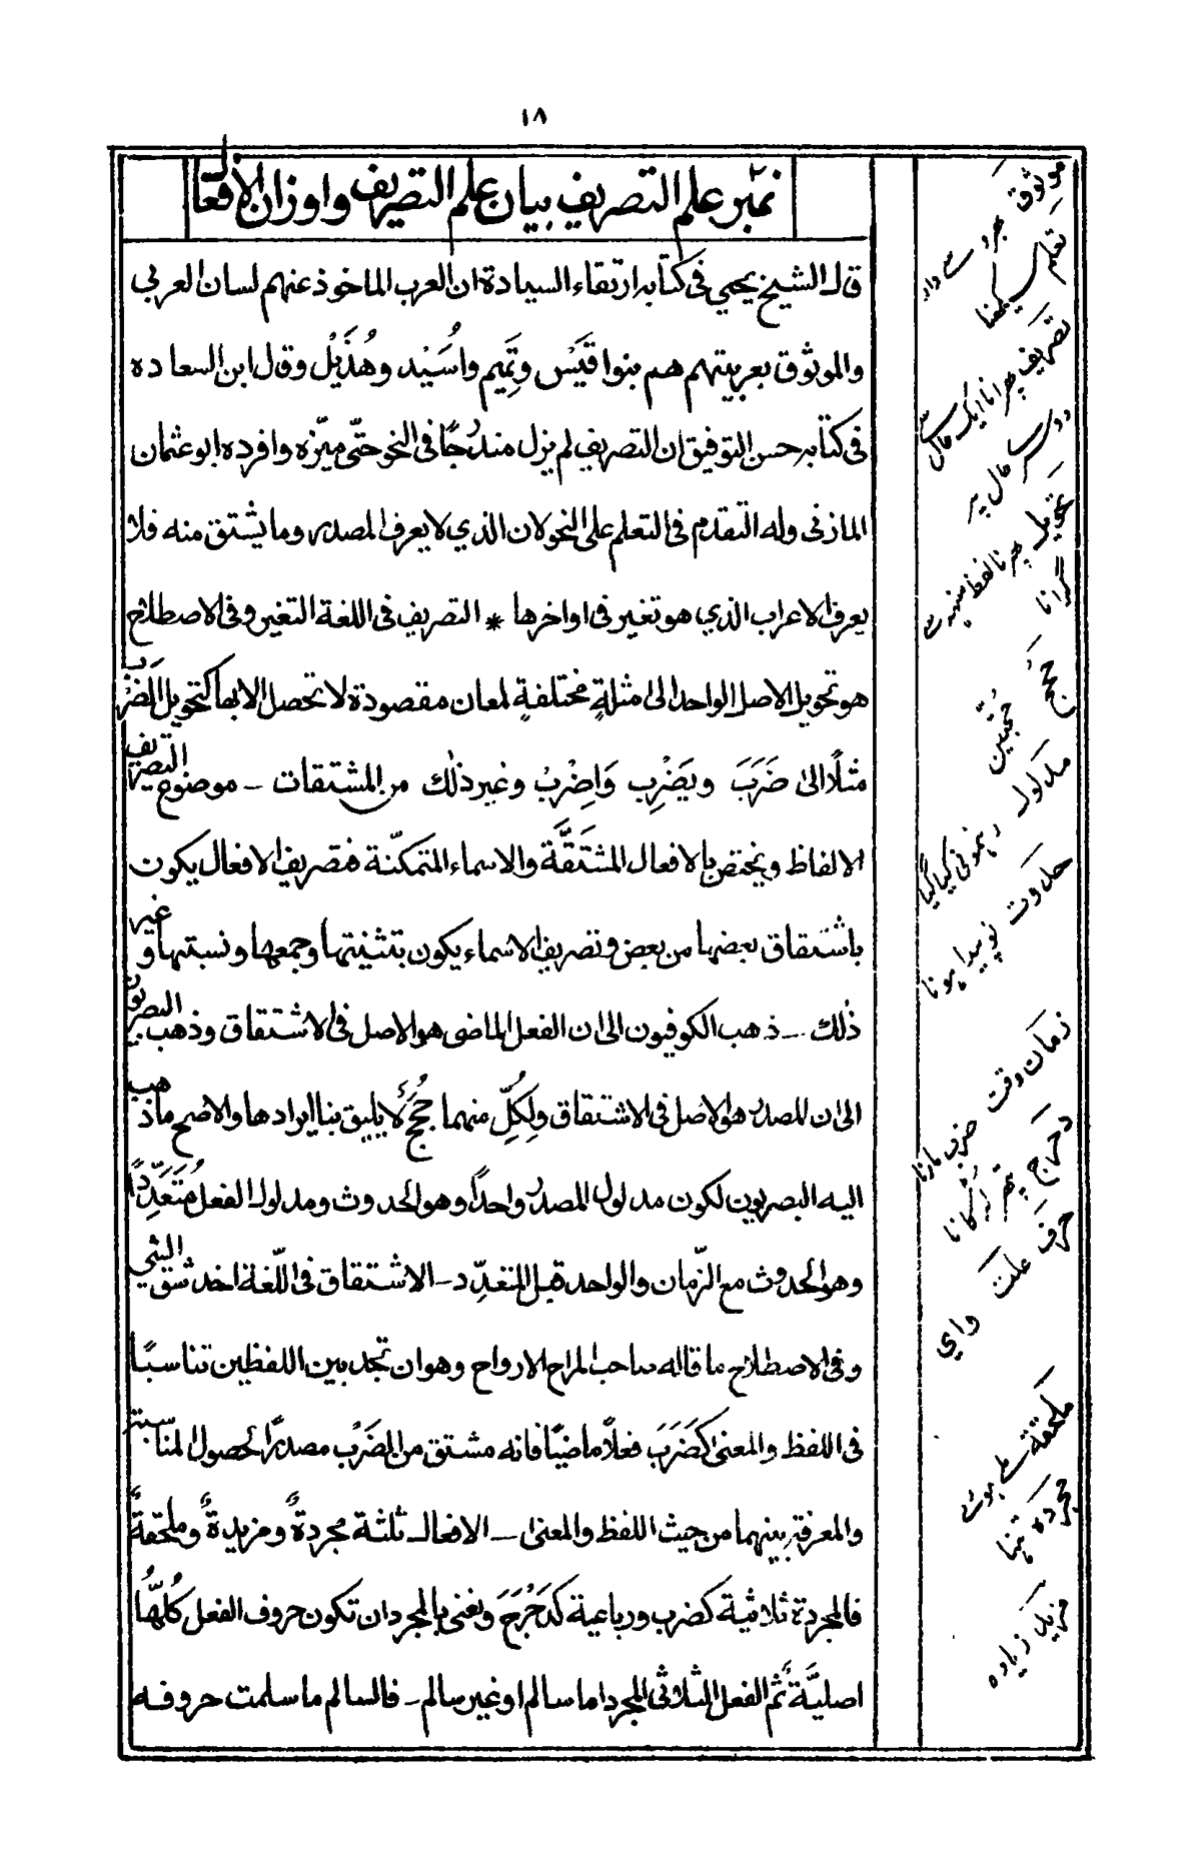 ١٨
نمبر علم التصريف بيان علم التصريف واوزان الافعال
قال الشيخ يحيي فى كتابه ارتقاء السيادة ان العرب الماخوذ عنهم لسان العربي
والموثوق بعربيتهم هم بنوا قَيَسْ وتَمِيم واُسَيْد وهُذَيْلْ وقال ابن السعاده
فى كتابه حسن التوفيق ان التصريف لم يزل مندرُجًا فى النحو حتّى ميّزه وافرده ابو عثمان
المازنى وله التقدم فى التعلم على النحو لان الذي لا يعرف المصدر وما يشتق منه فلا
يعرف الاعراب الذي هو تغير فى اواخرها * التصريف فى اللغة التغير وفى الاصطلاح
هو تحويل الاصل الواحد الى امثلةٍ مختلفةٍ لمعان مقصودة لا تحصل الا بها كتحويل الضَرْب
مثلًا الىٰ ضَرَبَ ويَضْرِب وَاضِرْبْ وغير ذٰلك من المشتقات ــ موضوع التصريف
الالفاظ ويختص بالافعال المشتَقَّة والاسماء المتمكنّة فتصريف الافعال يكون
باشتقاق بعضها من بعض وتصريف الاسماء يكون بتثنيتها وجمعها ونسبتها وغير
ذٰلك ــ ذهب الكوفيون الى ان الفعل الماضى هو الاصل فى الاشتقاق وذهب البصريون
الى ان المصدر هو الاصل فى الاشتقاق ولِكُلِّ منهما حُجَجٌ لا يليق بنا ايرادها والاصح ماذهب
اليه البصريون لكون مدلول المصدر واحداً وهو الحدوث ومدلول الفعل مُتَعَدِّداً
وهو الحدوث مع الزّمان والواحد قبل المتعدِّد ــ الاشتقاق فى اللّغة اخذ شق الشي
وفى الاصطلاح ما قاله صاحب المراح الارواح وهو ان تجد بين اللفظين تناسبًا
فى اللفظ والمعنى كَضَرَبَ فعلاً ماضيًا فانه مشتق من الضَرْب مصدرًا لحصول المناسبة
والمعرفة بينهما من حيث اللفظ والمعنى ــ الافعال ثلثة مجردةٌ ومزيدةٌ وملحقةٌ
فالمجردة ثلاثية كضرب ورباعية كدَحْرَجَ ونعنى بالمجرد ان تكون حروف الفعل كُلهَّا
اصليَّة ثم الفعل الثلاثى المجرد اما سالم او غير سالم ــ فالسالم ما سلمت حروفه
موثوق بھروسے دار
تعلم سیکھنا
تصریف پھرانا ایک حال سے
دوسرے حال پر
تحویل پھرنا لفظ
گرانا
حُجَج حجتیں
مدلول رہنمونی کیا گیا
حدوث نو پیدا ہونا
زمان وقت ضرب مارنا
دحرج پتھر لڑکانا
حرف علت واي
ملحقة ملے ہوئے
مجردہ تنہا
مزید زیادہ